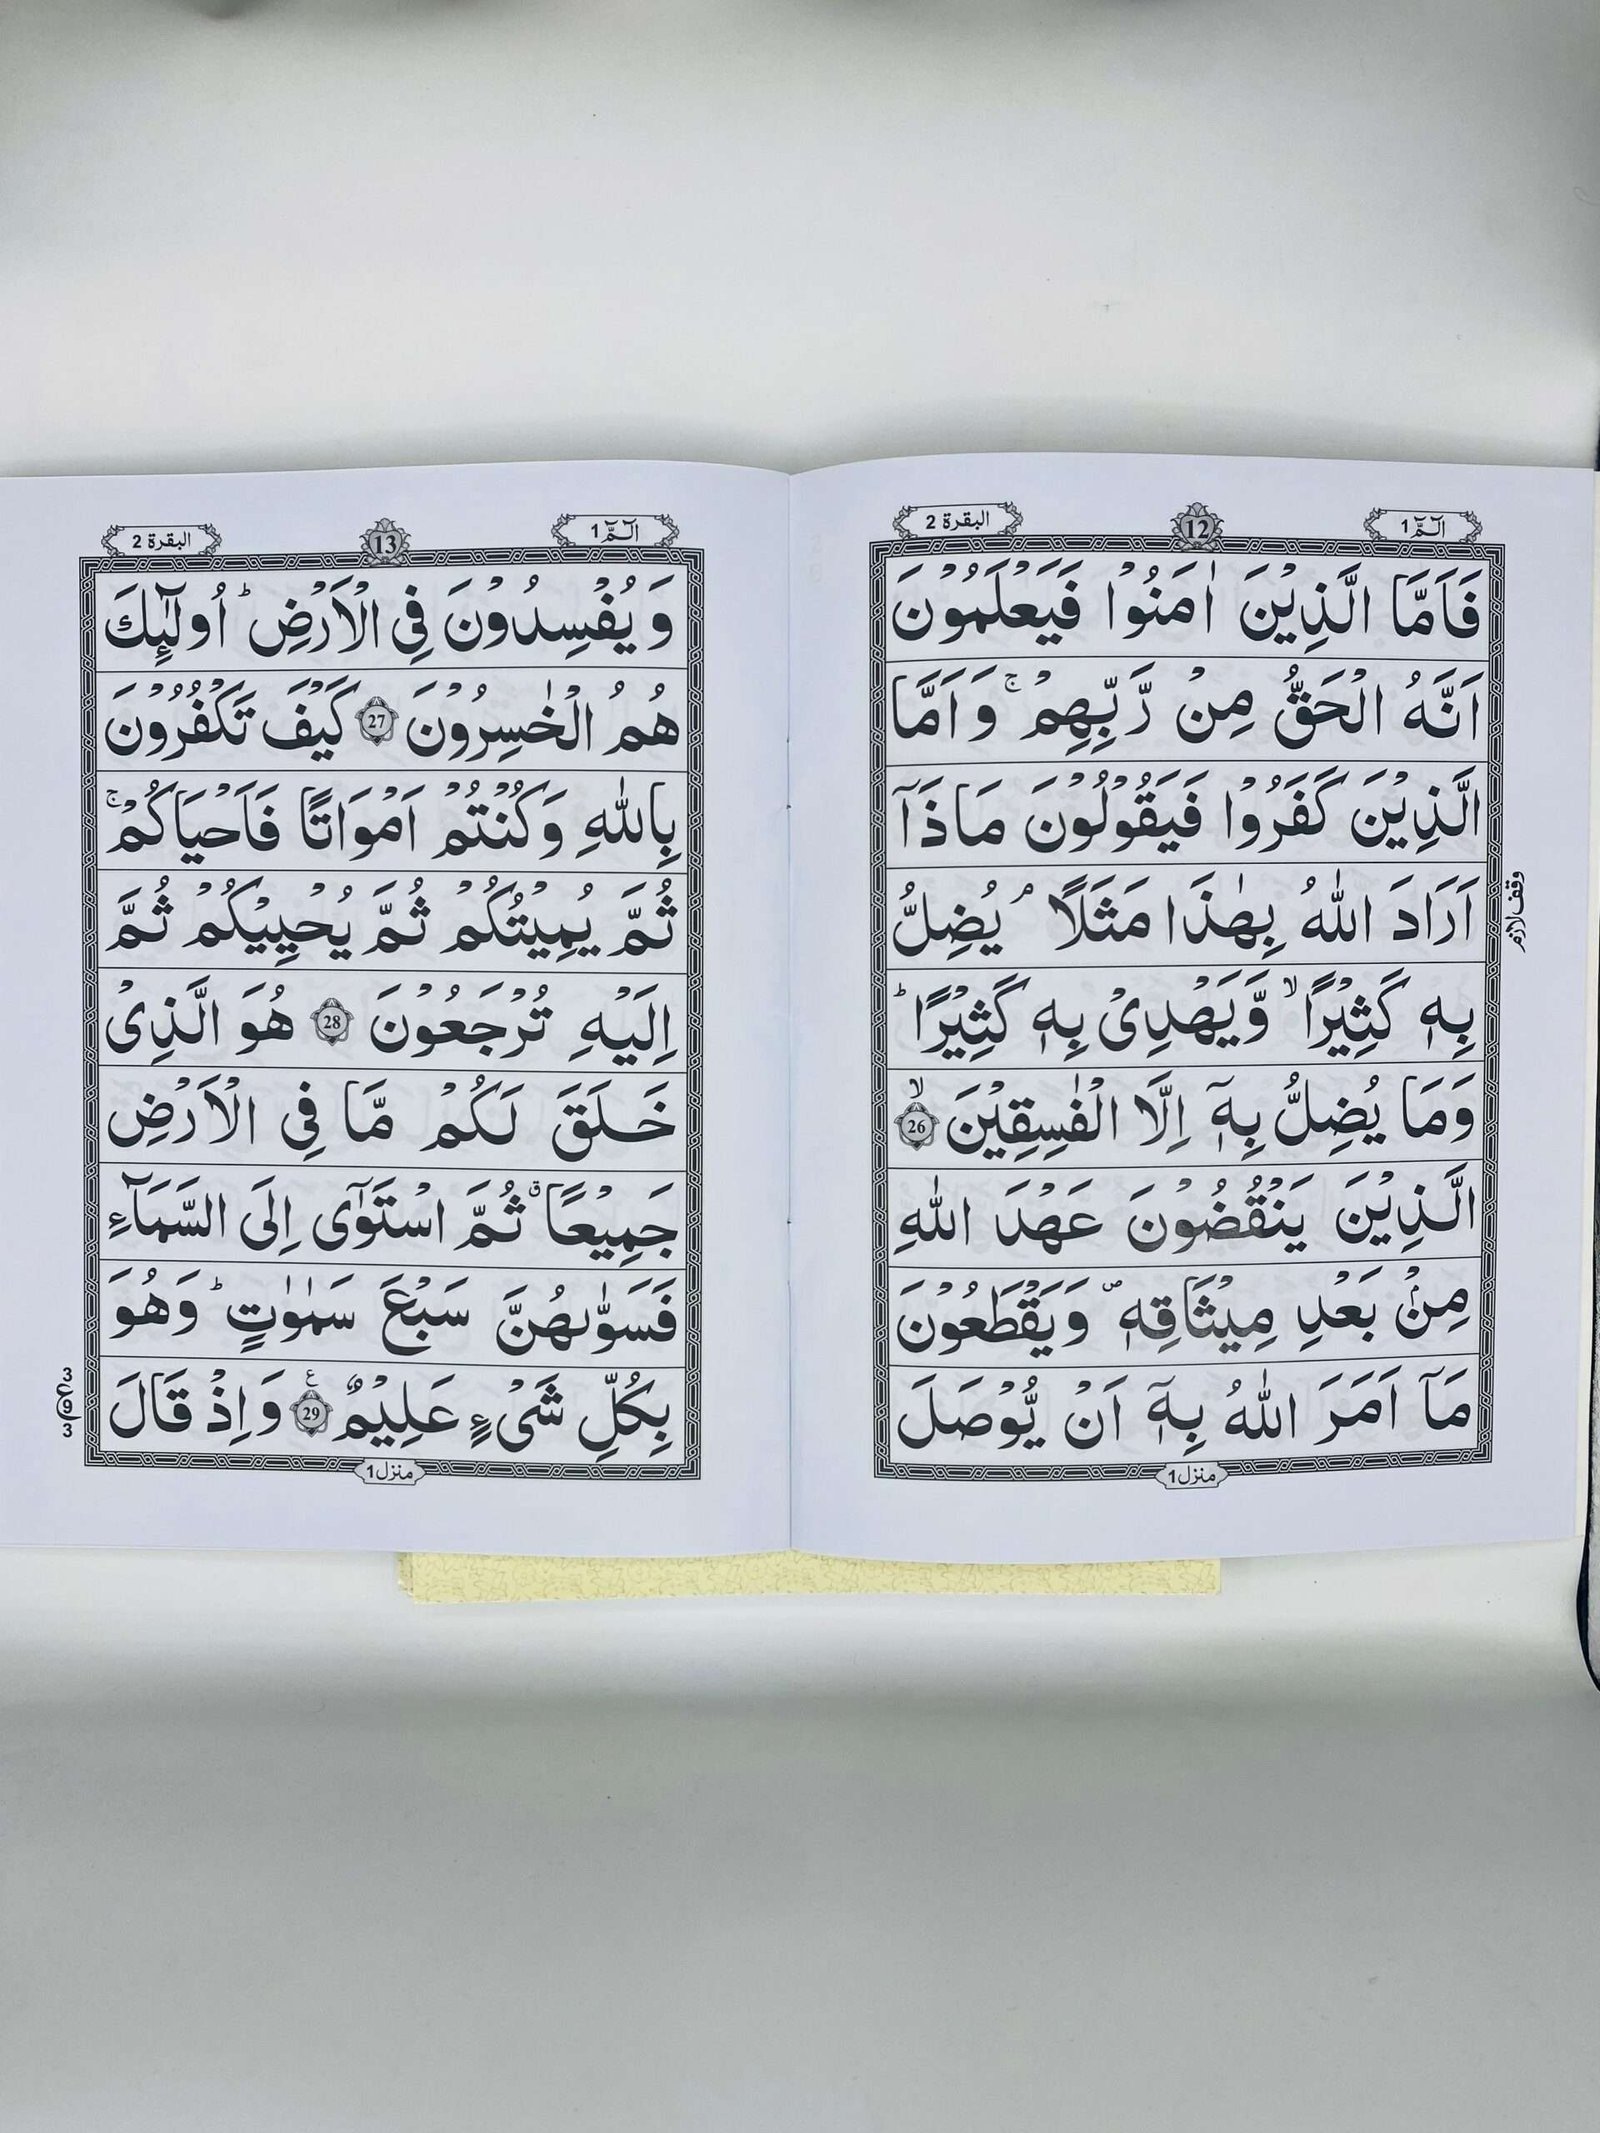 الٓمّٓ 1
12
البقرة 2
فَاَمَّا الَّذِيْنَ اٰمَنُوْا فَيَعْلَمُوْنَ
اَنَّهُ الْحَقُّ مِنْ رَّبِّهِمْ ۚ وَاَمَّا
الَّذِيْنَ كَفَرُوْا فَيَقُوْلُوْنَ مَاذَآ
اَرَادَ اللّٰهُ بِهٰذَا مَثَلًا ۘ يُضِلُّ
وقف لازم
بِهٖ كَثِيْرًا ۙ وَّيَهْدِىْ بِهٖ كَثِيْرًا ؕ
وَمَا يُضِلُّ بِهٖٓ اِلَّا الْفٰسِقِيْنَ ۙ 26
الَّذِيْنَ يَنْقُضُوْنَ عَهْدَ اللّٰهِ
مِنْۢ بَعْدِ مِيْثَاقِهٖ ۪ وَيَقْطَعُوْنَ
مَآ اَمَرَ اللّٰهُ بِهٖٓ اَنْ يُّوْصَلَ
منزل 1
الٓمّٓ 1
13
البقرة 2
وَيُفْسِدُوْنَ فِى الْاَرْضِ ؕ اُولٰٓئِكَ
هُمُ الْخٰسِرُوْنَ 27 كَيْفَ تَكْفُرُوْنَ
بِاللّٰهِ وَكُنْتُمْ اَمْوَاتًا فَاَحْيَاكُمْ ۚ
ثُمَّ يُمِيْتُكُمْ ثُمَّ يُحْيِيْكُمْ ثُمَّ
اِلَيْهِ تُرْجَعُوْنَ 28 هُوَ الَّذِىْ
خَلَقَ لَكُمْ مَّا فِى الْاَرْضِ
جَمِيْعًا ۗ ثُمَّ اسْتَوٰٓى اِلَى السَّمَآءِ
فَسَوّٰىهُنَّ سَبْعَ سَمٰوٰتٍ ؕ وَهُوَ
بِكُلِّ شَىْءٍ عَلِيْمٌ ع 29 وَاِذْ قَالَ
3
ع 9
3
منزل 1